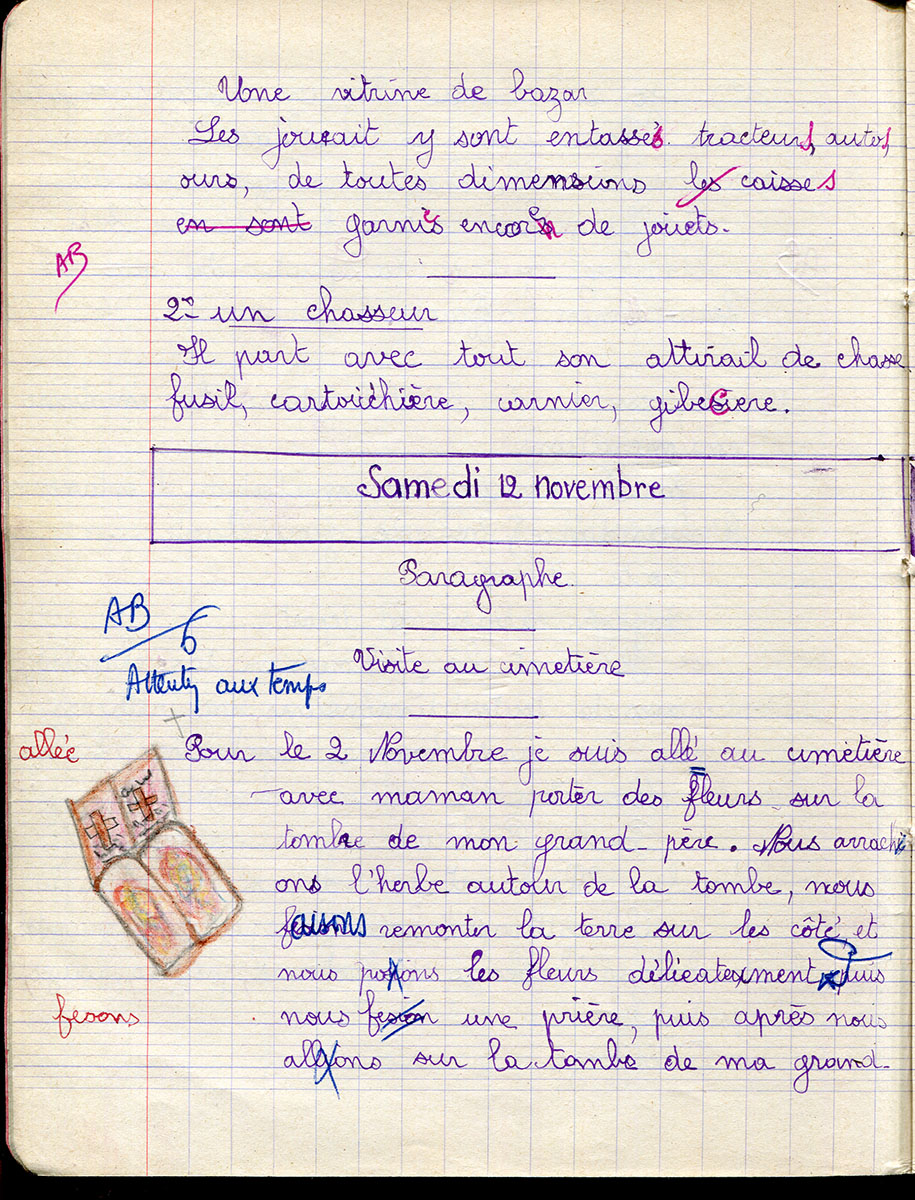 Une vitrine de bazar
Les jouait y sont entassés. tracteurs, autos,
ours, de toutes dimensions les caisses
en sont garnies encore de jouets.
AB
2- un chasseur
Il part avec tout son attirail de chasse
fusil, cartouchière, carnier, gibecière.
Samedi 12 novembre
Paragraphe
AB
6
Visite au cimetière
Attention aux temps
allée
Pour le 2 Novembre je suis allé au cimetière
avec maman porter des fleurs sur la
tombe de mon grand-père. Nous arrachi
ons l'herbe autour de la tombe, nous
faisons remonter la terre sur les côté et
nous posons les fleurs délicatement puis
fesons
nous une prière, puis après nous
allons sur la tombe de ma grand-